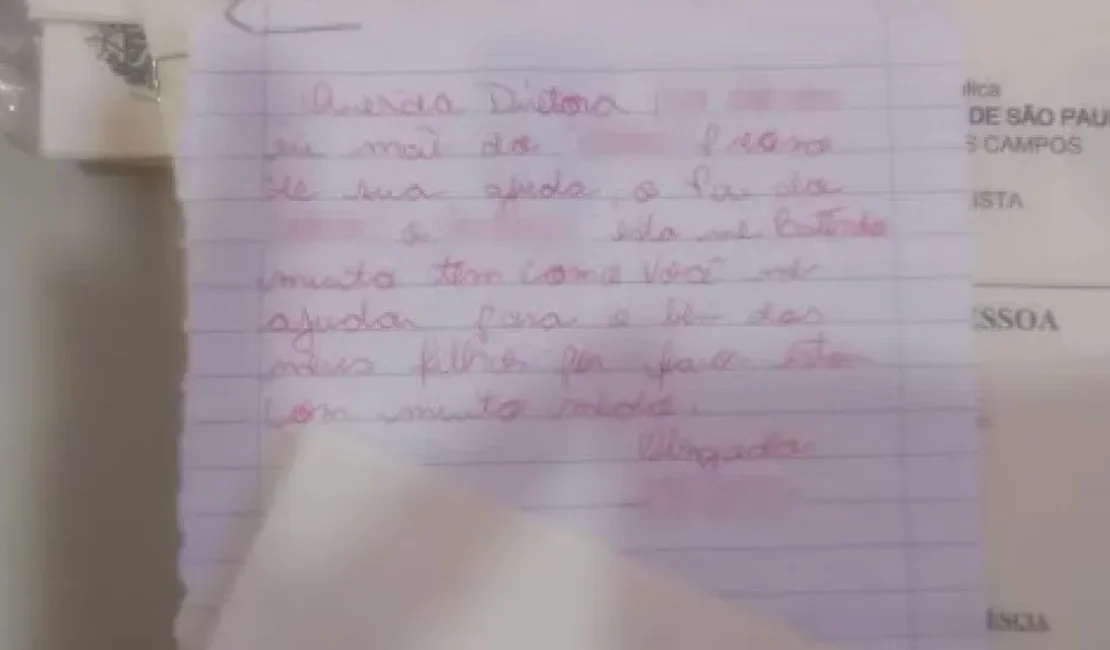 Querida Diretora
eu mai da preciso
de sua ajuda, o Pai da
e esta me Batendo
muito tem como você me
ajudar para o bem dos
meus filhos por favor estou
com muito medo.
Obrigada
lica
DE SÃO PAU
S CAMPOS
ISTA
SSOA
ÊNCIA